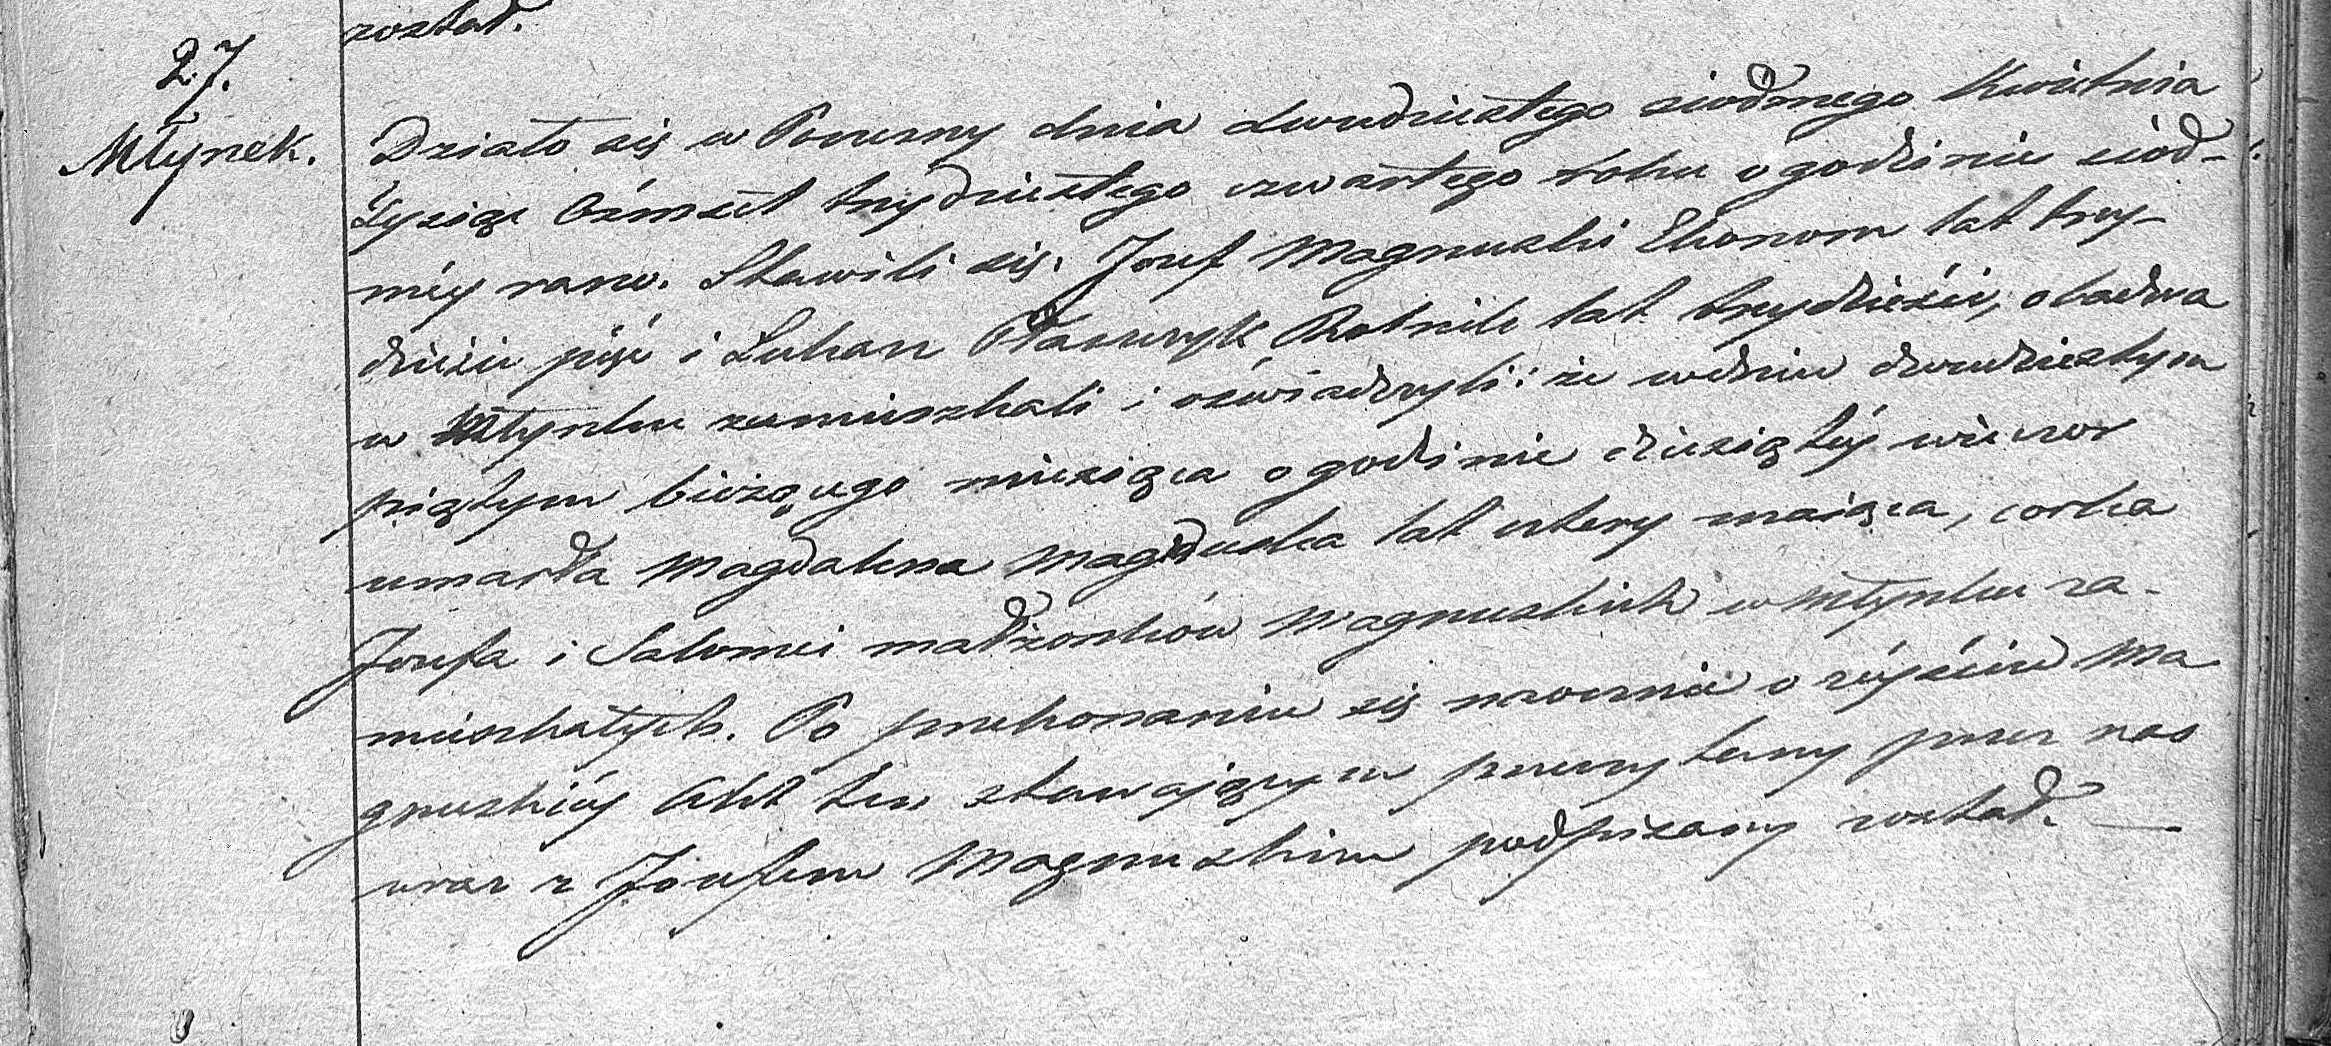 został.
27.
Młynek.
Działo się w Poczesny dnia dwudziestego siodmego Kwietnia
tysiąc ośmset trzydziestego czwartego roku o godzinie siód-
méy rano. Stawili się. Jozef Magnuski Ekonom lat trzy-
dzieści pięć i Lukasz Rolnik lat trzydzieści, obadwa
w Młynku zamieszkali i oświadczyli: że w dniu dwudziestym
piątym bieżącego miesiąca o godzinie dziesiątéy wieczor
umarła Magdalena Magnuska lat cztery maiąca, corka
Jozefa i Salomei małżonków Magnuskich w Młynku za-
mieszkałych. Po przekonaniu się naocznie o zéyściu Ma
gnuskiéy Akt ten stawaiącym przeczytany przez nas
wraz z Jozefem Magnuskim podpisany został. —